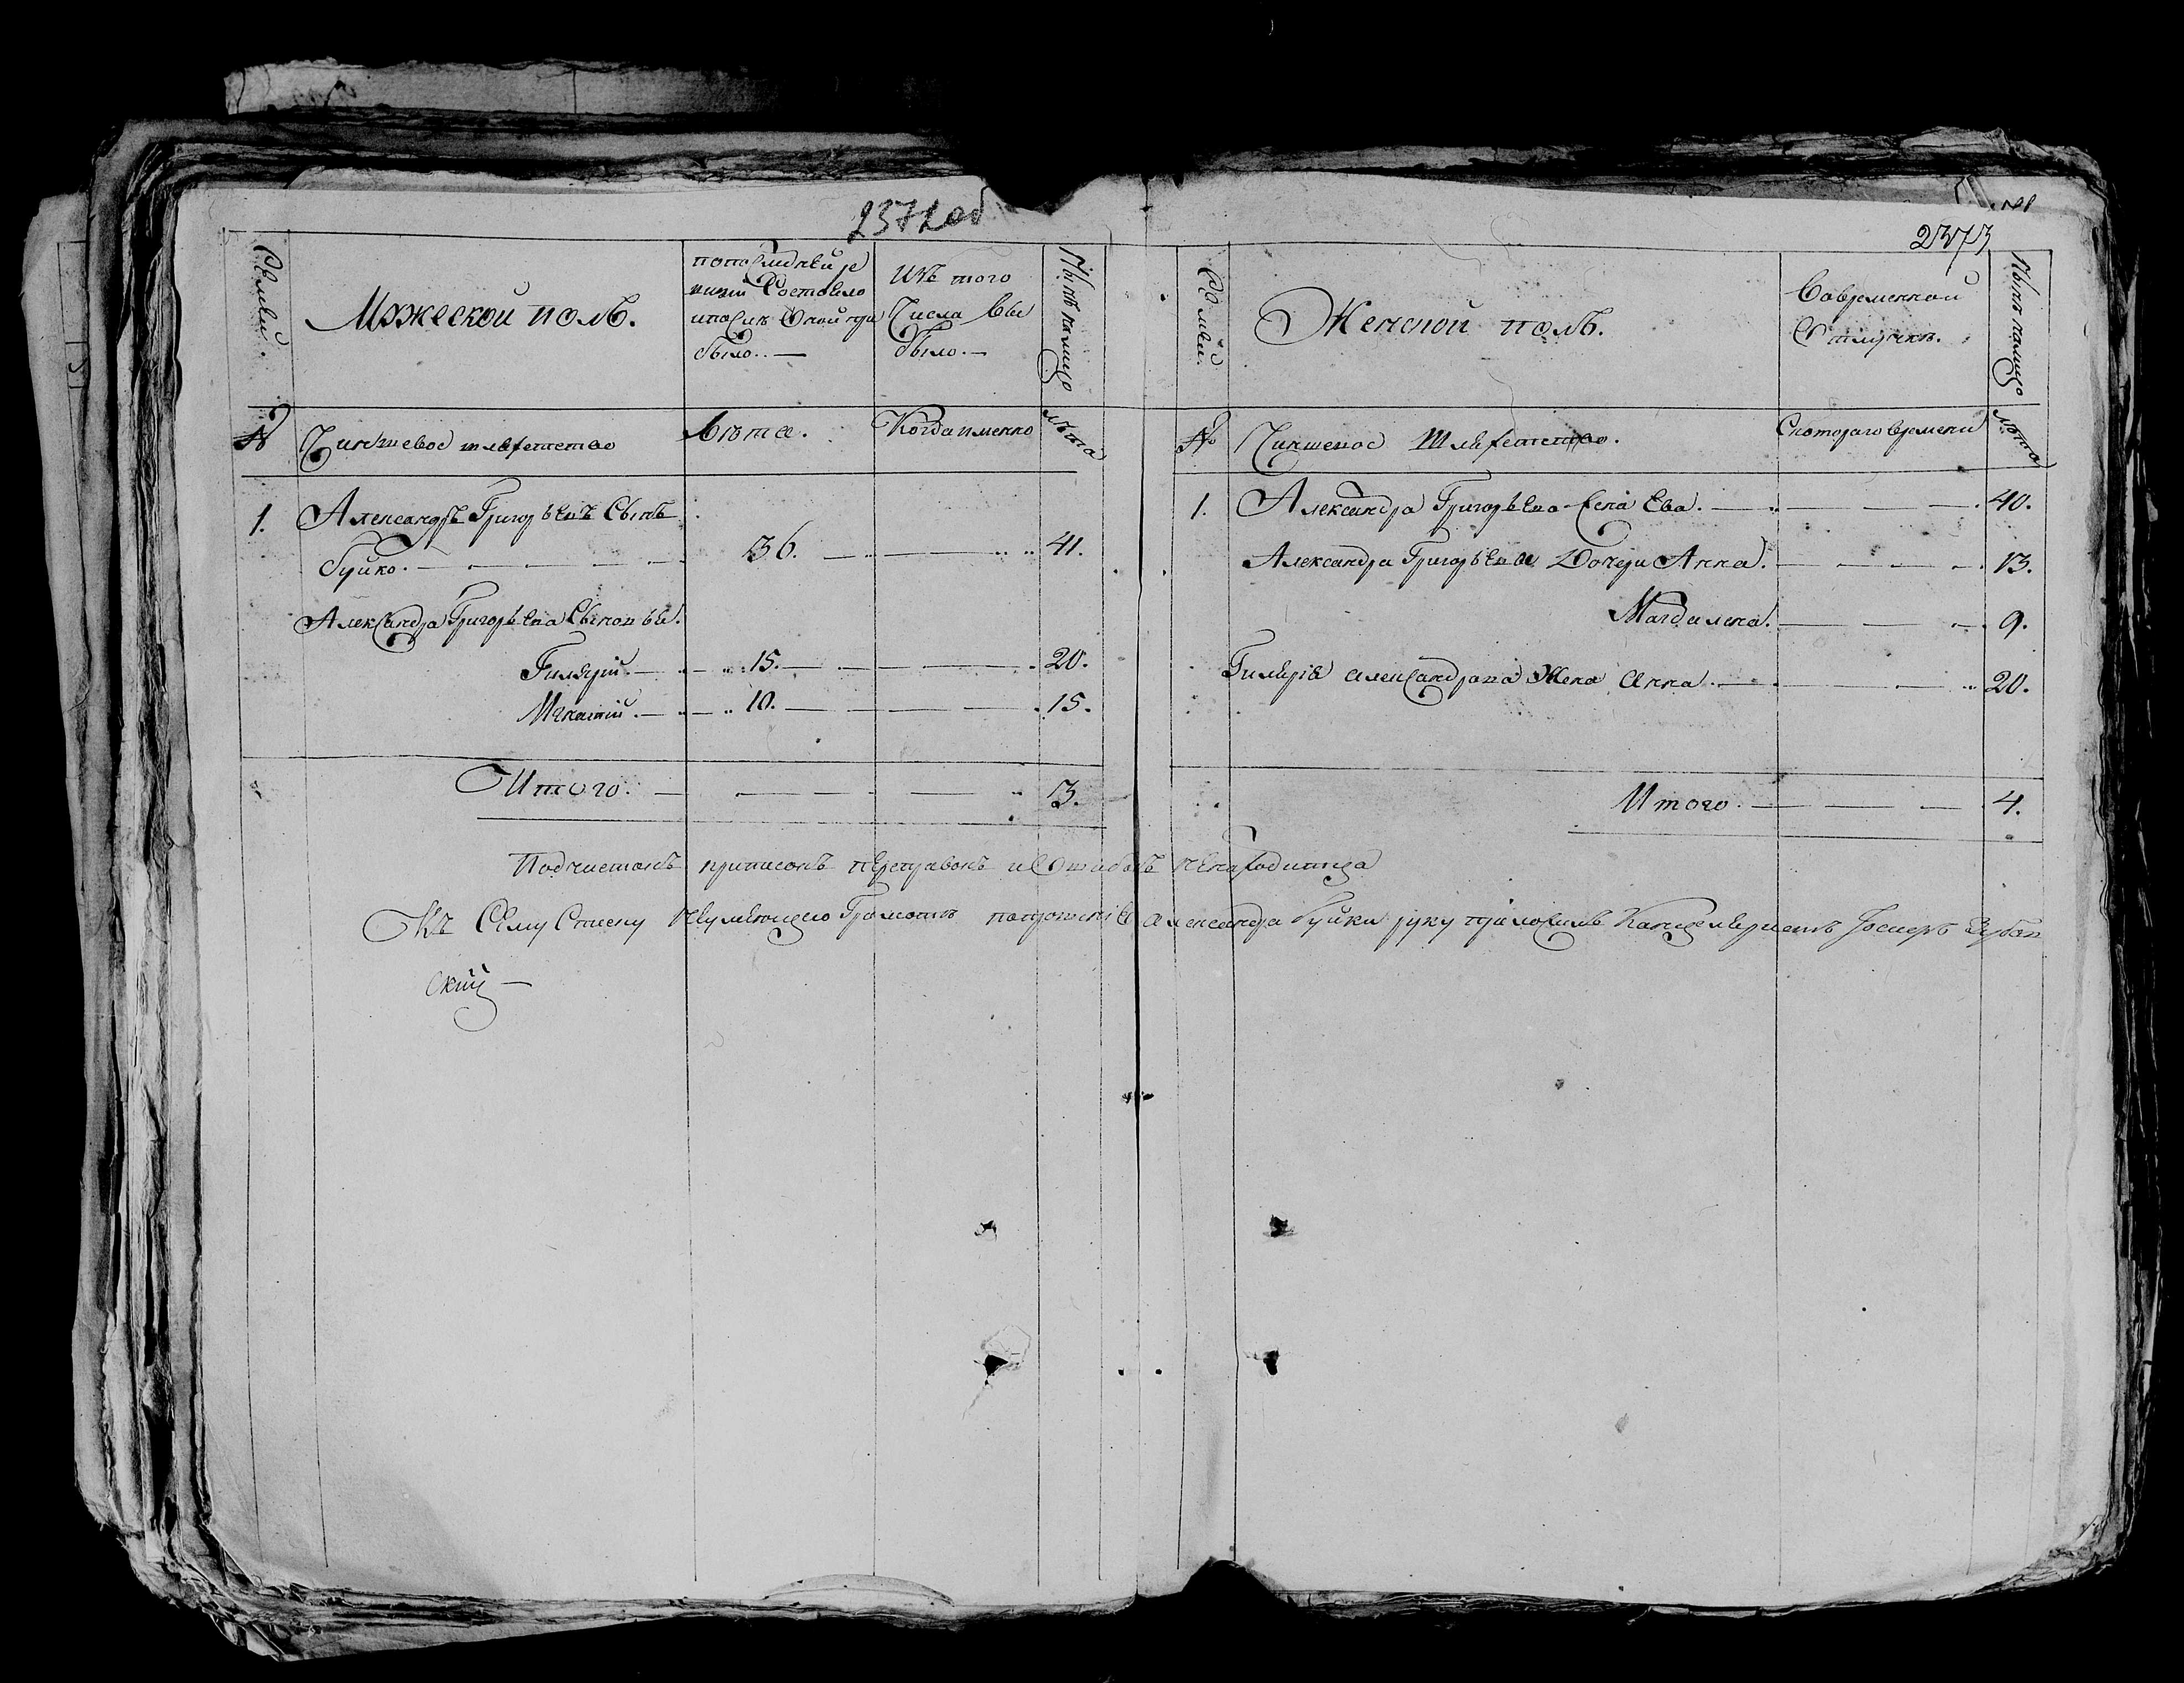 2372 об
2373
Семьи
Мужеской полъ.
по последней ре
визiи Состояло
и после Оной при
было. —
Изъ того
Числа вы
было. —
Ныне налицо
№
Чиншевое шляхетство
Лета.
Когда именно
лета
1. Александръ Григорьевъ Сынъ
Гуйко. — 36. — 41.
Александра Григорьева Сыновьи.
Гилярiй. — 15. — 20.
Игнатiй. — 10. — 15.
Итого. — 3.
Семьи
Женской полъ.
Во временной
Отлучке.
Ныне налицо
№
Чиншевое Шляхетство.
Скотораго времени
Лета
1. Александра Григорьева Жена Ева. — 40.
Александра Григорьева Дочери Анна. — 13.
Магдалена. — 9.
Гилярiя Александрова Жена Анна. — 20.
Итого. — 4.
Подчистокъ приписокъ переправокъ и Ошибокъ ненаходитца
Къ Сему Списку неумеющего Грамоте по прошенiю Александра Гуйки руку приложилъ Канцеляристъ
скiй —